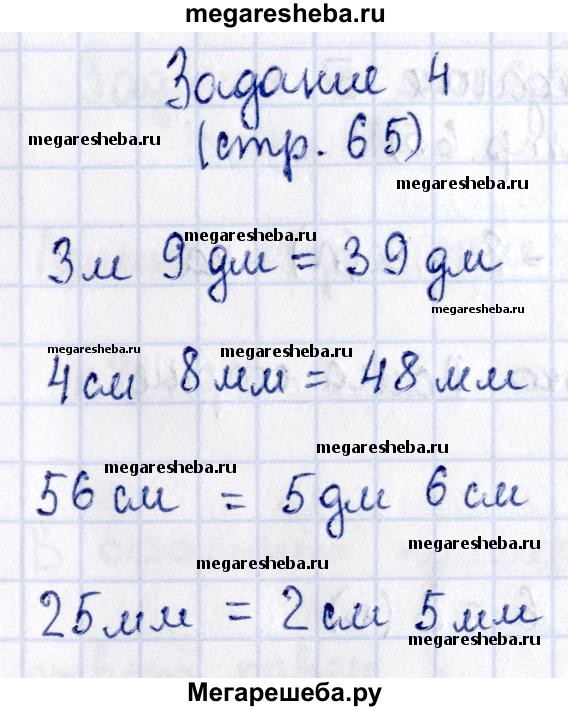 megaresheba.ru
Задание 4
megaresheba.ru
(стр. 65)
megaresheba.ru
megaresheba.ru
3м 9 дм = 39 дм
megaresheba.ru
megaresheba.ru
megaresheba.ru
4 см 8 мм = 48 мм
megaresheba.ru
megaresheba.ru
56 см = 5 дм 6 см
megaresheba.ru
megaresheba.ru
25 мм = 2 см 5 мм
megaresheba.ru
Мегарешеба.ру